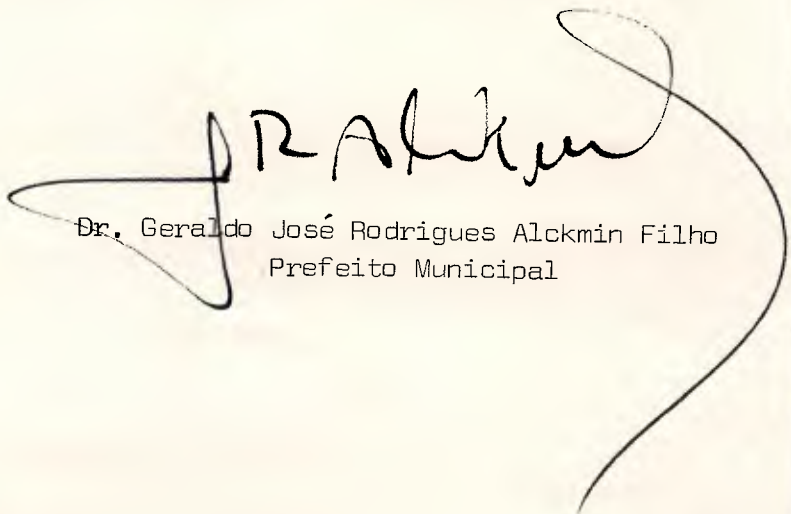 JR Alckmin
Dr. Geraldo José Rodrigues Alckmin Filho
Prefeito Municipal